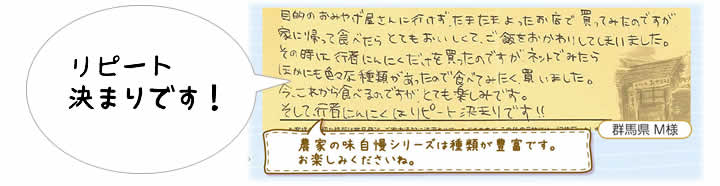 リピート
決まりです！
目的のおみやげ屋さんに行けず、たまたまよったお店で買ってみたのですが
家に帰って食べたらとてもおいしくて、ご飯をおかわりしてしまいました。
その時は行者にんにくだけを買ったのですが、ネットでみたら
ほかにも色々な種類があったので食べてみたく買いました。
今、これから食べるのですが、とても楽しみです。
そして、行者にんにくはリピート決まりです!!
群馬県 M様
農家の味自慢シリーズは種類が豊富です。
お楽しみくださいね。